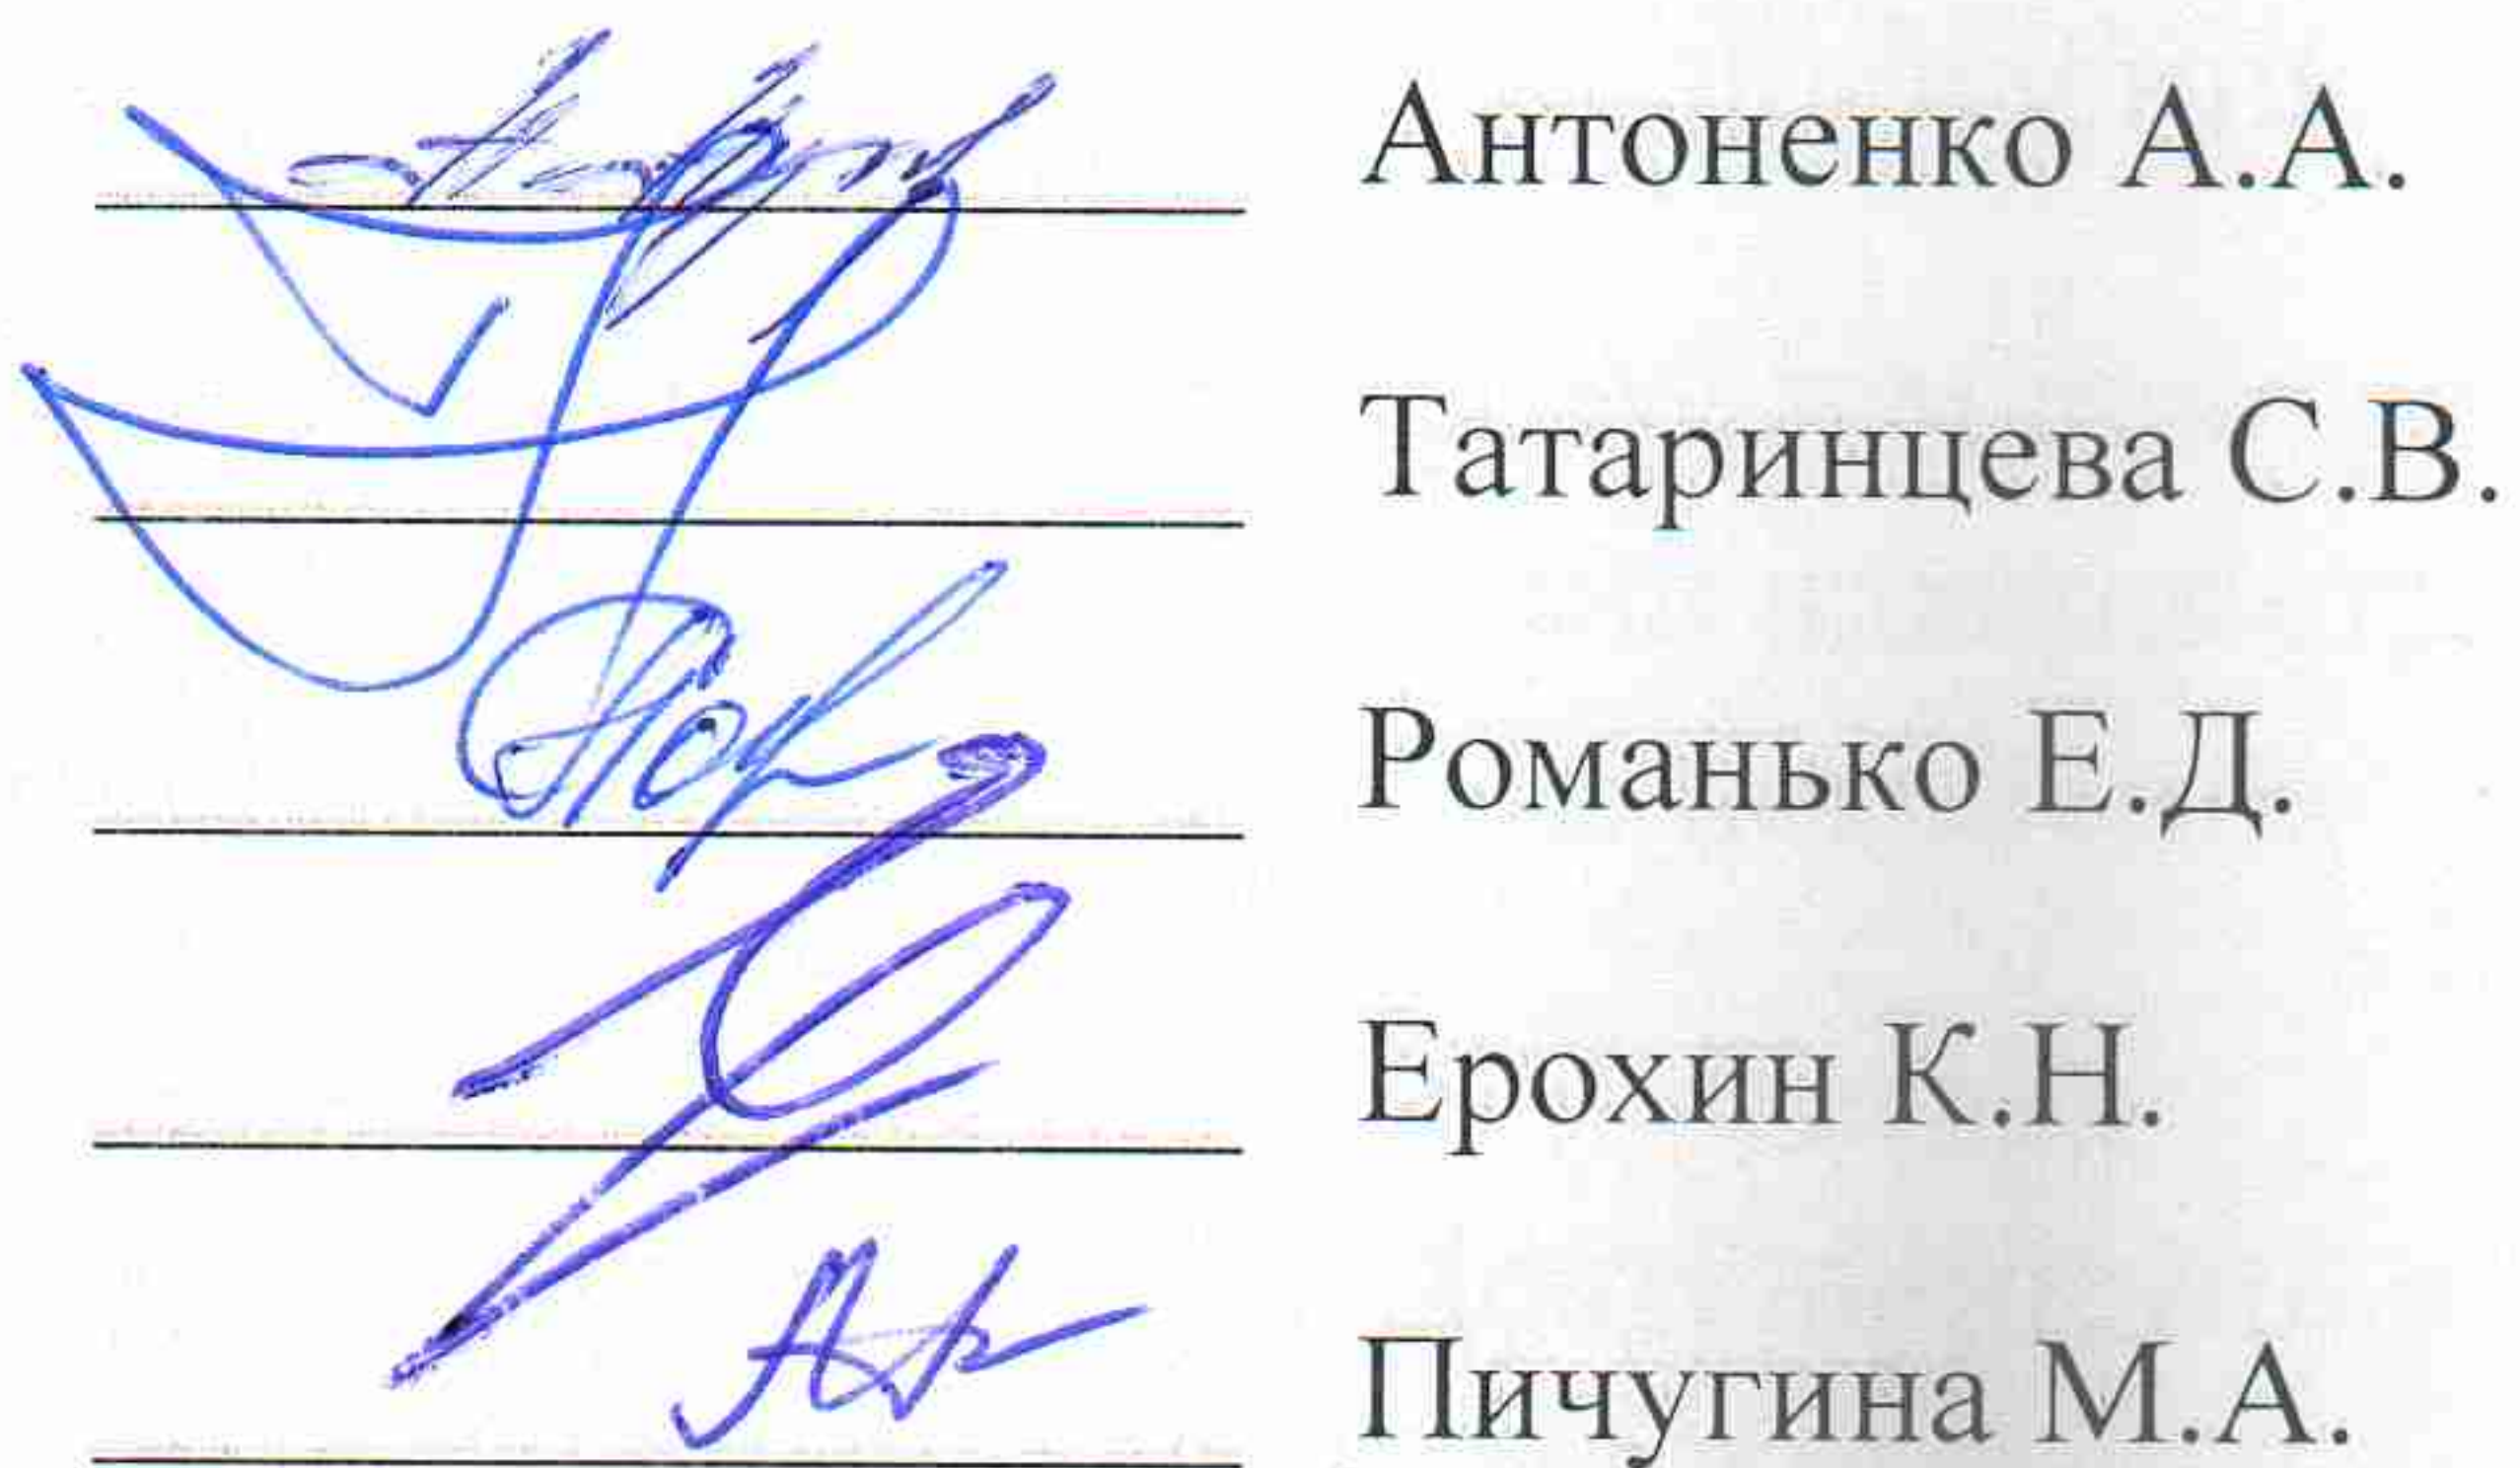 Антоненко А.А.
Татаринцева С.В.
Романько Е.Д.
Ерохин К.Н.
Пичугина М.А.